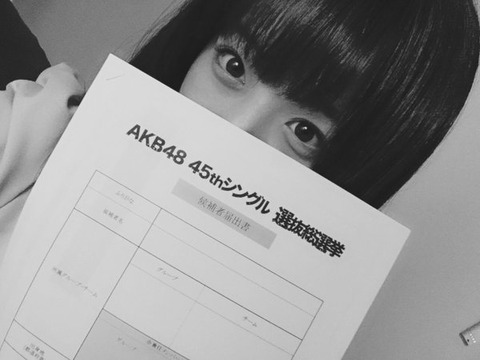 AKB48 45thシングル 選抜総選挙
候補者届出書
ふりがな
候補者名
グループ
チーム
所属グループ/チーム
グループ